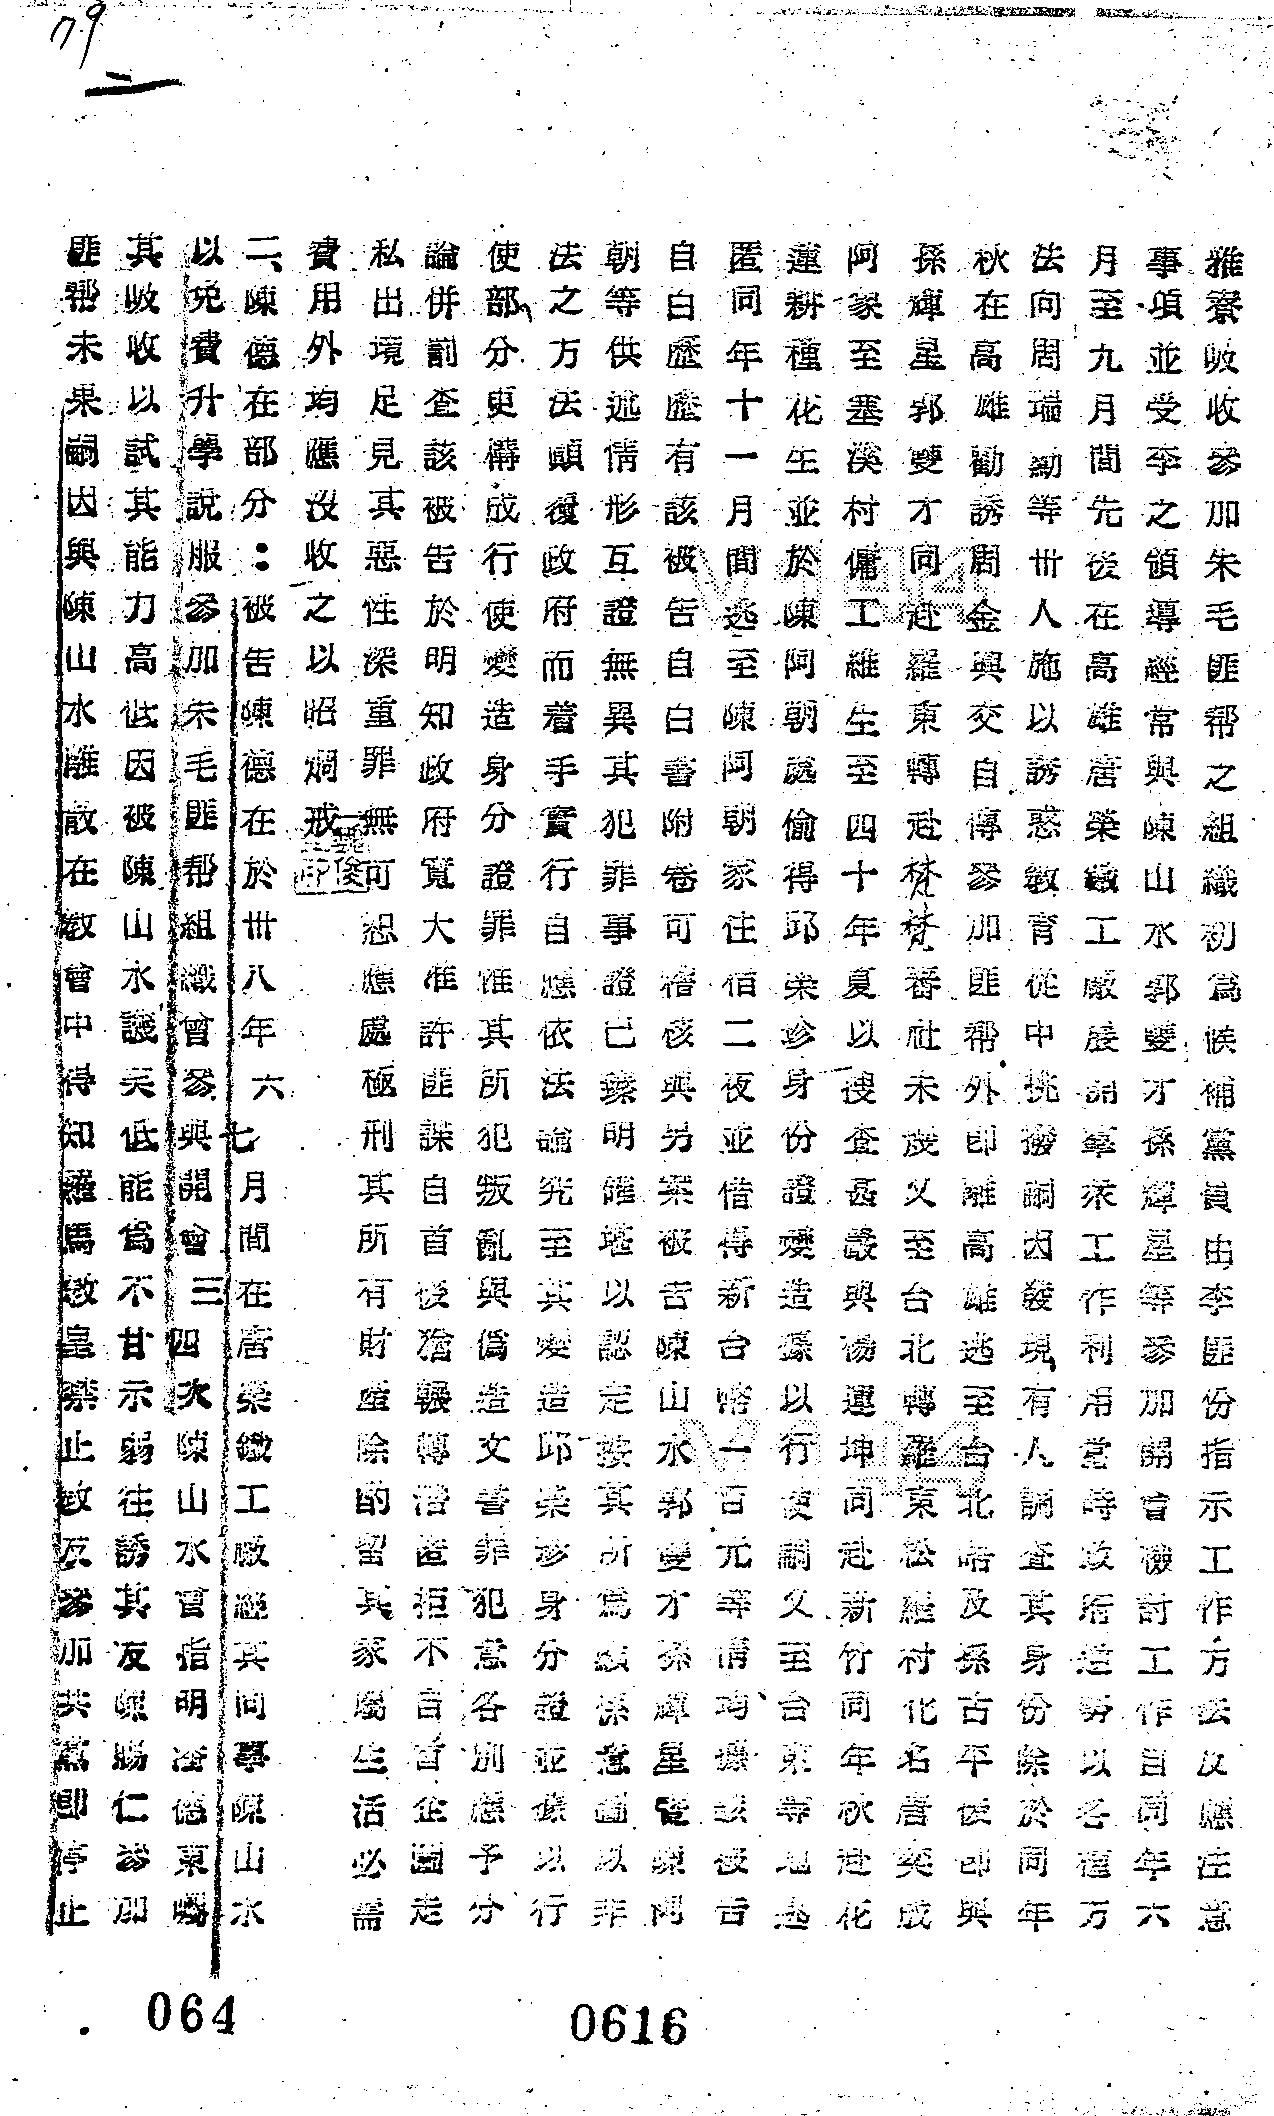 79
二
雅寮吸收參加朱毛匪帮之組織初為候補黨員由李匪份指示工作方法及應注意
事項並受李之領導經常與陳山水郭雙才孫輝星等參加開會檢討工作自同年六
月至九月間先後在高雄唐榮鐵工廠展開羣眾工作利用當時政府造勢以各種方
法向周瑞勛等卅人施以誘惑教育從中挑撥嗣因發現有人調查其身份除於同年
秋在高雄勸誘周金與交自傳參加匪帮外即離高雄逃至台北 及孫古平後即與
孫輝星郭雙才同赴羅東轉赴梵梵番社未幾又至台北轉羅東松羅村化名唐奕成
阿家至鑿溪村傭工維生至四十年夏以復查甚嚴與楊運坤同赴新竹同年秋赴花
蓮耕種花生並於陳阿朝處偷得邱榮珍身份證變造據以行使嗣又至台東等地逃
匿同年十一月間逃至陳阿朝家住佰二夜並借得新台幣一百元等情均據該被告
自白歷歷有該被告自白書附卷可稽核與另案被告陳山水郭雙才孫輝星暨陳阿
朝等供述情形互證無異其犯罪事證已臻明確堪以認定按其所為顯係意圖以非
法之方法顛覆政府而着手實行自應依法論究至其變造邱榮珍身分證並係以行
使部分更構成行使變造身分證罪惟其所犯叛亂與偽造文書罪犯意各別應予分
論併罰查該被告於明知政府寬大准許匪諜自首後猶輾轉潛匿拒不自首企圖走
私出境足見其惡性深重罪無可恕應處極刑其所有財產除酌留其家屬生活必需
費用外均應沒收之以昭烱戒
二、陳德在部分：被告陳德在於卅八年六七月間在唐榮鐵工廠經其同事陳山水
以免費升學說服參加朱毛匪帮組織曾參與開會三四次陳山水曾指明潘德東囑
其吸收以試其能力高低因被陳山水譏笑低能為不甘示弱往誘其友陳賜仁參加
匪帮未果嗣因與陳山水離散在教會中得知羅馬教皇禁止教友參加共黨即停止
064
0616